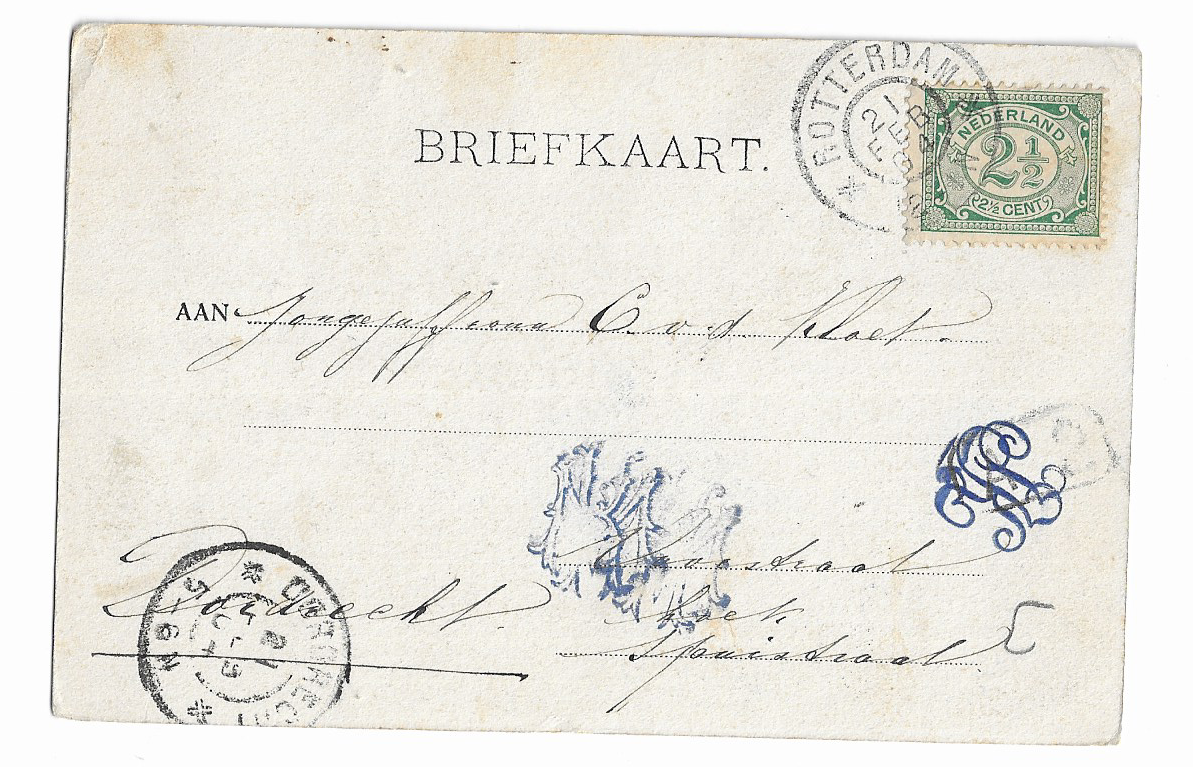 BRIEFKAART.
ROTTERDAM
21
FEB
NEDERLAND
2 1/2
2½ CENT
AAN Jongejuffrouw C v d Kloet.
straat
Dordrecht. hoek
Spuistraat
DORDRECHT
5